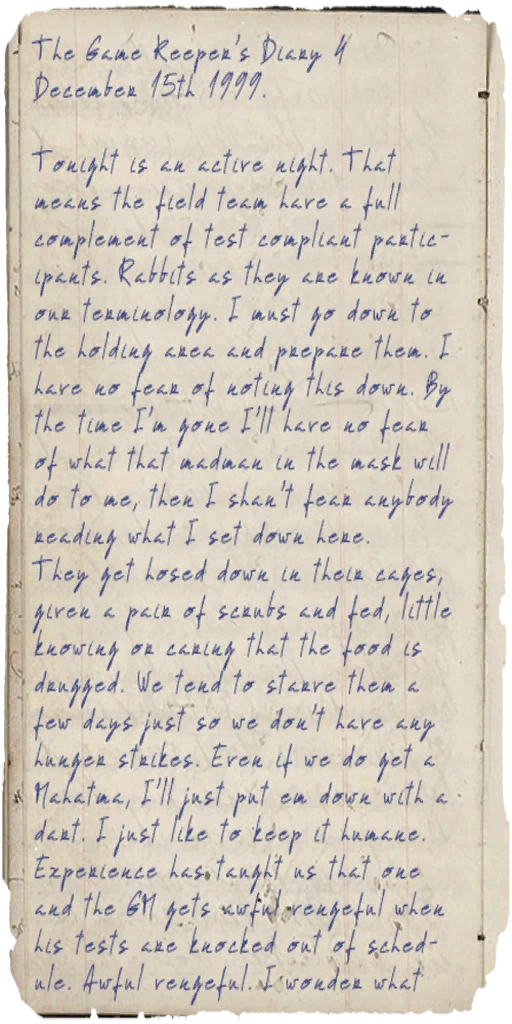 The Game Keeper's Diary 4
December 15th 1999.
Tonight is an active night. That
means the field team have a full
complement of test compliant partic-
ipants. Rabbits as they are known in
our terminology. I must go down to
the holding area and prepare them. I
have no fear of noting this down. By
the time I'm gone I'll have no fear
of what that madman in the mask will
do to me, then I shan't fear anybody
reading what I set down here.
They get hosed down in their cages,
given a pair of scrubs and fed, little
knowing or caring that the food is
drugged. We tend to starve them a
few days just so we don't have any
hunger strikes. Even if we do get a
Mahatma, I'll just put em down with a
dart. I just like to keep it humane.
Experience has taught us that one
and the GM gets awful rengeful when
his tests are knocked out of sched-
ule. Awful rengeful. I wonder what